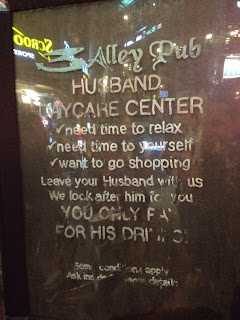 SCROO
SPORT
Alley Pub
HUSBAND
DAYCARE CENTER
✓need time to relax
✓need time to yourself
✓want to go shopping
Leave your Husband with us
We look after him for you
YOU ONLY PAY
FOR HIS DRINKS!
Some conditions apply
Ask inside for more details